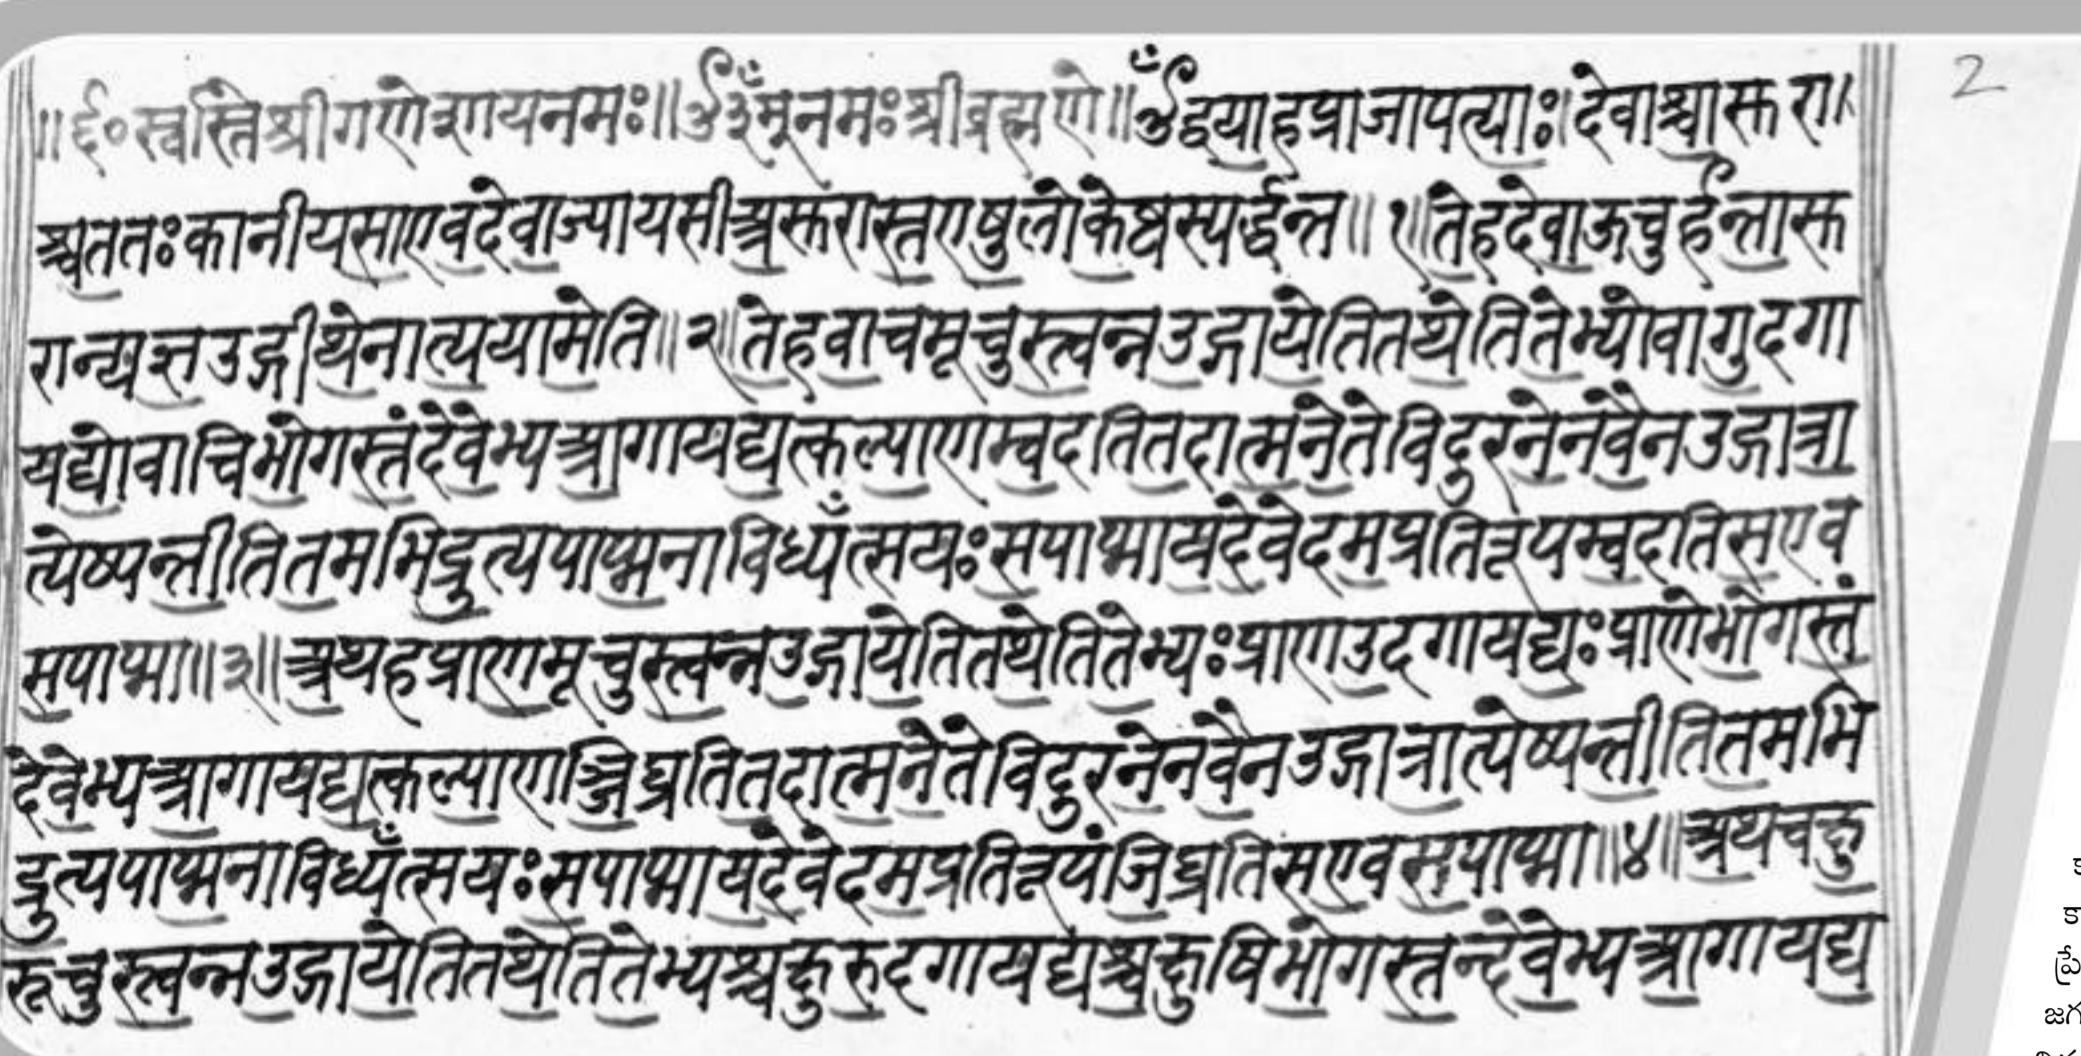 ॥ ६० स्वस्ति श्रीगणेशायनमः॥ॐ३ँम्नमःश्रीब्रह्मणे॥ॐद्वयाहप्राजापत्याः।देवाश्चासुरा
2
श्चततःकानीयसाएवदेवाज्यायसीअसुरास्तएषुलोकेष्वस्पर्द्धन्त॥१॥तेहदेवाऊचुर्हन्तासु
रान्यज्ञउद्गीथेनात्ययामेति॥२॥तेहवाचमूचुस्त्वन्नउद्गायेतितथेतितेभ्योवागुदगा
यद्योवाचिभोगस्तंदेवेभ्यआगायद्यत्कल्याणम्वदतितदात्मनेतेविदुरनेनवैनउद्गात्रा
त्येष्यन्तीतितमभिद्रुत्यपाप्मनाविध्यँत्सयःसपाप्मायदेवेदमप्रतिरूपम्वदतिसएव
सपाप्मा॥३॥अथहप्राणमूचुस्त्वन्नउद्गायेतितथेतितेभ्यःप्राणउदगायद्यःप्राणेभोगस्तं
देवेभ्यआगायद्यत्कल्याणञ्जिघ्रतितदात्मनेतेविदुरनेनवैनउद्गात्रात्येष्यन्तीतितमभि
द्रुत्यपाप्मनाविध्यँत्सयःसपाप्मायदेवेदमप्रतिरूपंजिघ्रतिसएवसपाप्मा॥४॥अथचक्षु
रूचुस्त्वन्नउद्गायेतितथेतितेभ्यश्चक्षुरुदगायद्यश्चक्षुषिभोगस्तन्देवेभ्यआगायद्य